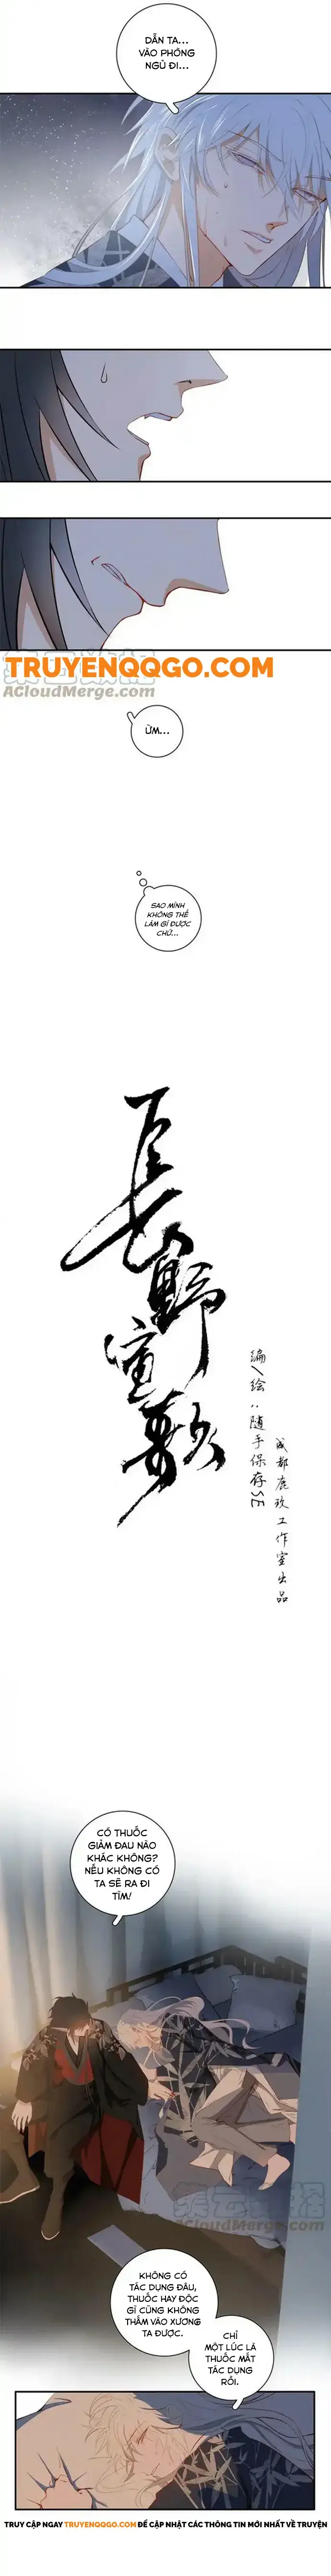 DẪN TA...
VÀO PHÒNG
NGỦ ĐI...
TRUYENQQGO.COM
ACloudMerge.com
ỪM...
SAO MÌNH
KHÔNG THỂ
LÀM GÌ ĐƯỢC
CHỨ...
長野宣歌
编/绘:随手保存SE
成都鹿玖工作室出品
CÓ THUỐC
GIẢM ĐAU NÀO
KHÁC KHÔNG?
NẾU KHÔNG CÓ
TA SẼ RA ĐI
TÌM!
ACloudMerge.com
KHÔNG CÓ
TÁC DỤNG ĐÂU,
THUỐC HAY ĐỘC
GÌ CŨNG KHÔNG
THẤM VÀO XƯƠNG
TA ĐƯỢC.
CHỈ
MỘT LÚC LÀ
THUỐC MẤT
TÁC DỤNG
RỒI.
TRUY CẬP NGAY TRUYENQQGO.COM ĐỂ CẬP NHẬT CÁC THÔNG TIN MỚI NHẤT VỀ TRUYỆN